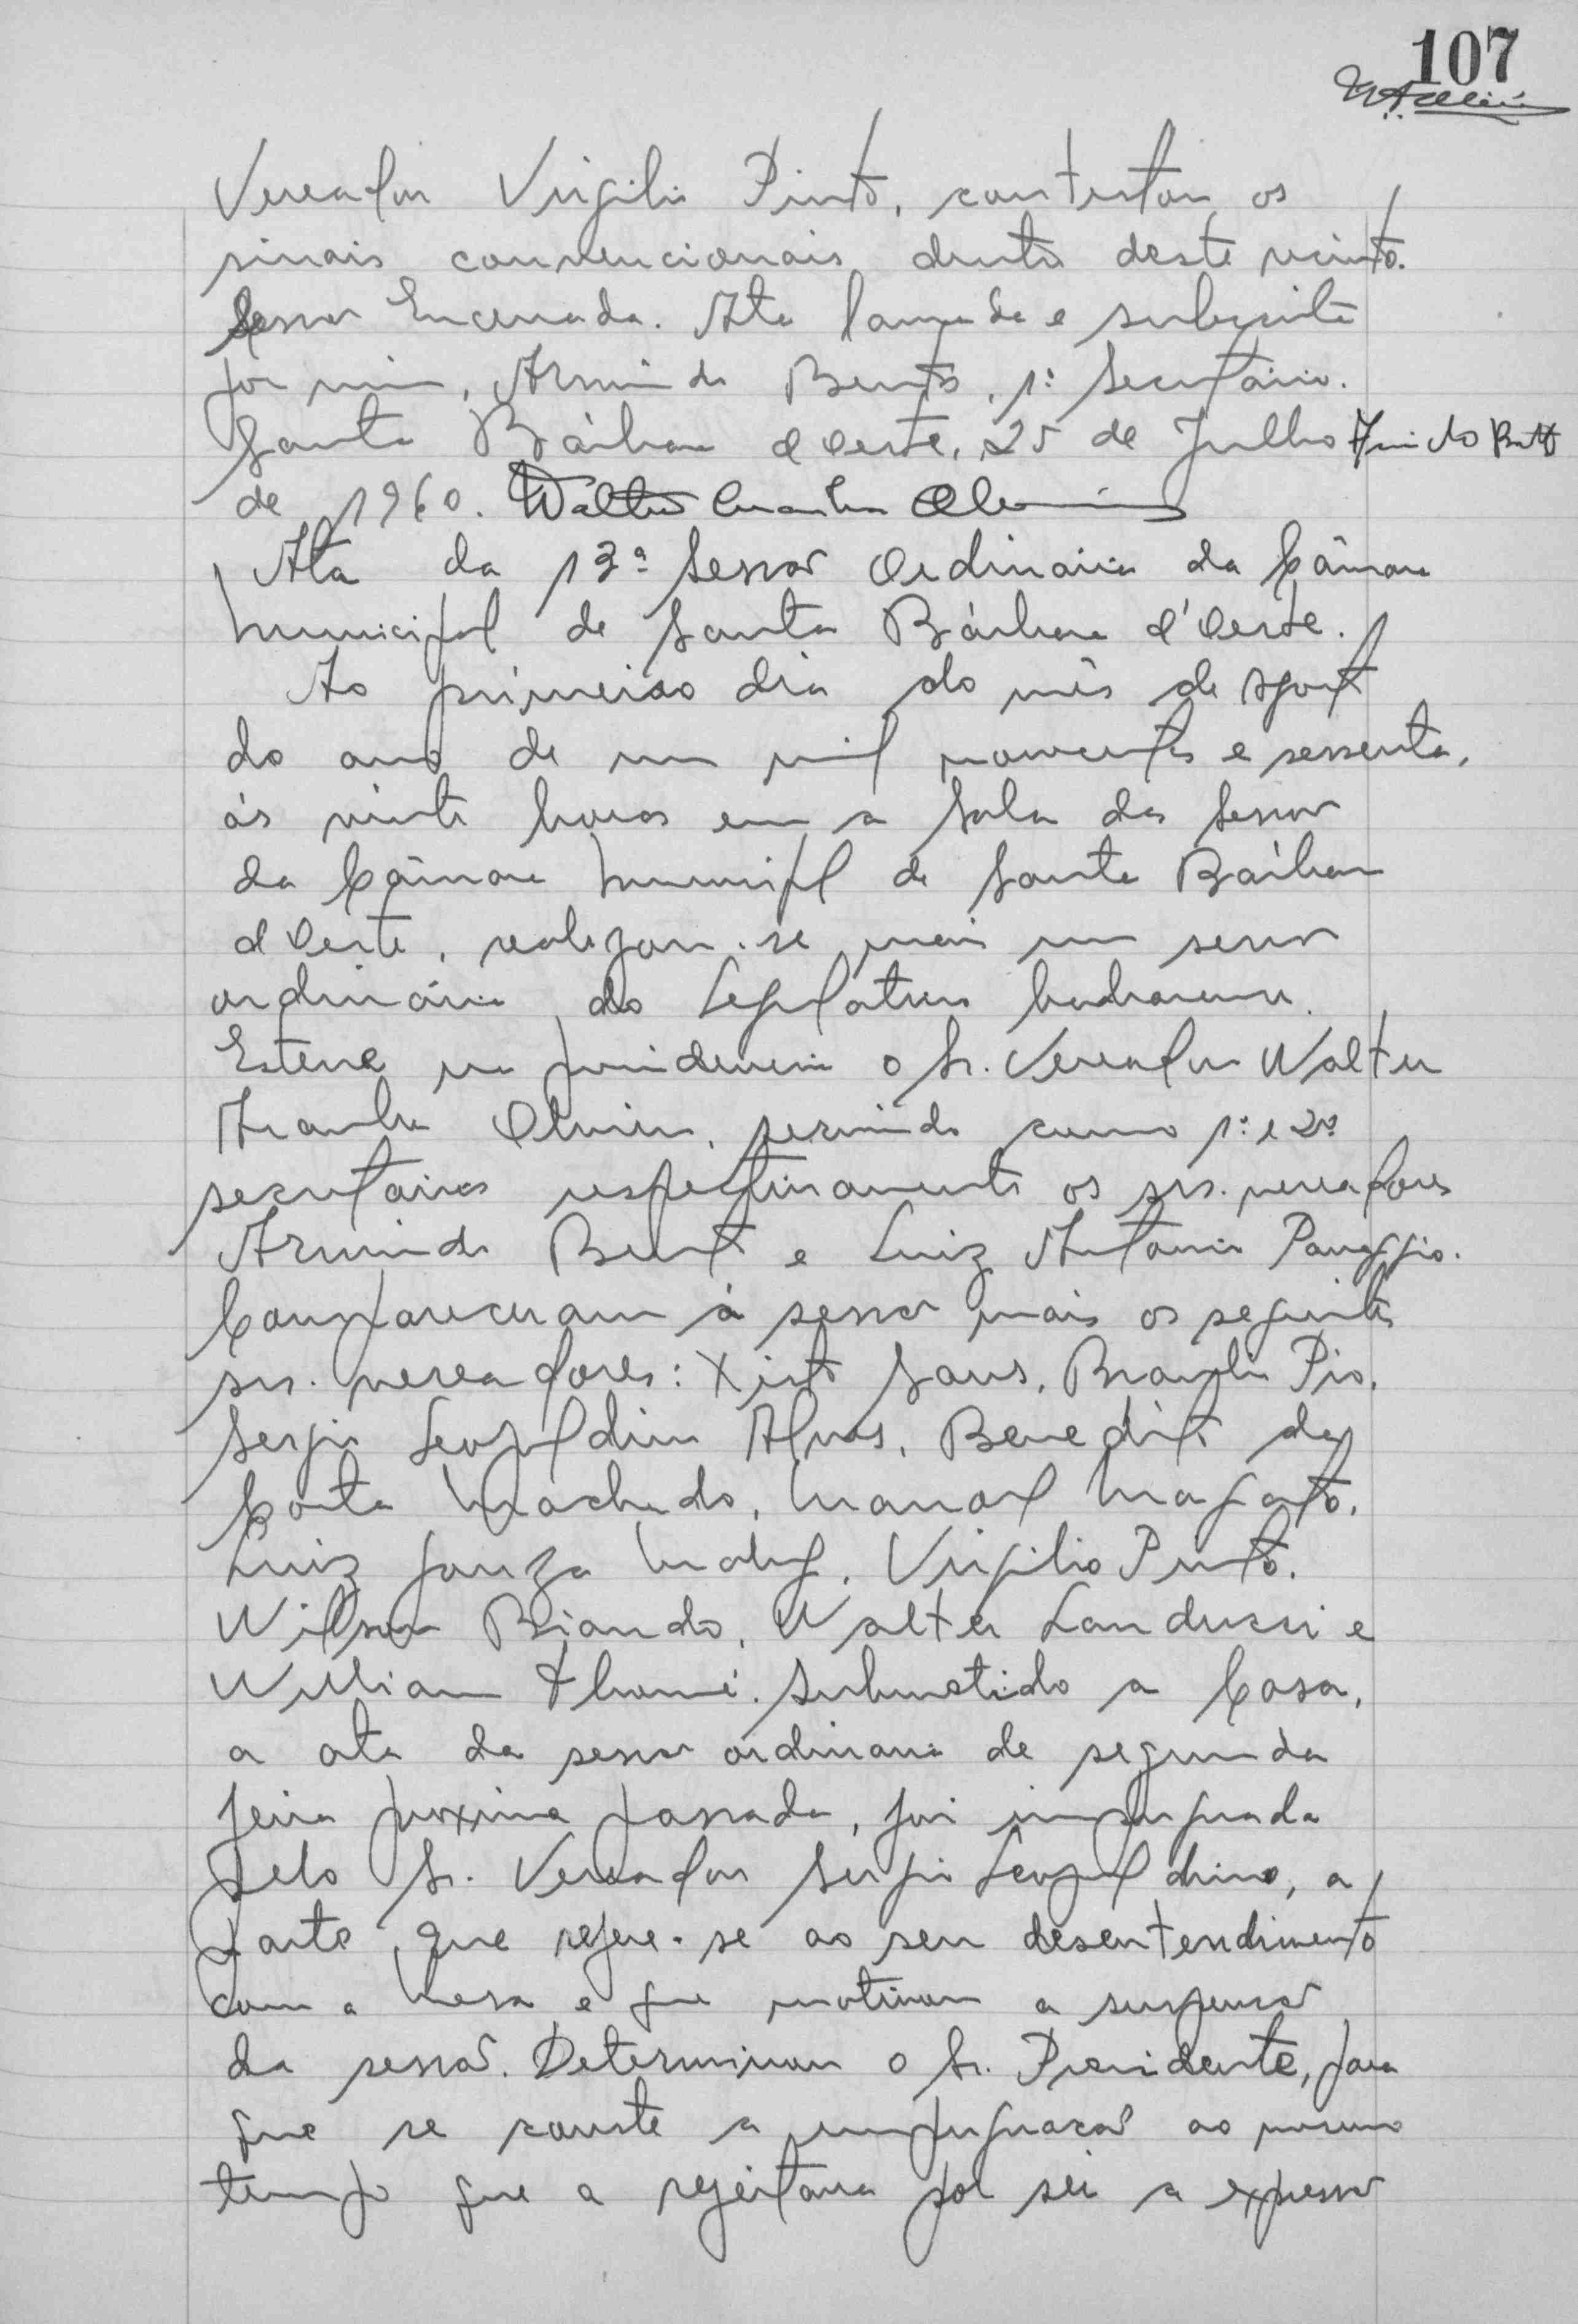 107
Vereador Virgilio Pinto, contestou os
sinais convencionais dentro deste recinto.
Sessão Encerrada. Ata lavrada e subscrita
por mim, Armindo Bento, 1º Secretário.
Santa Bárbara d Oeste, 25 de Julho
de 1960. Walter
Ata da 13ª Sessão Ordinária da Câmara
Municipal de Santa Bárbara d'Oeste.
Ao primeiro dia do mês de agosto
do ano de um mil novecentos e sessenta,
ás vinte horas em a Sala das Sessão
da Câmara Municipal de Santa Bárbara
d Oeste, realizou-se mais um sessão
ordinária do Legislativo barbarense.
Esteve na presidencia o Sr. Vereador Walter
Aranha Oliveira, servindo como 1º e 2º
secretários respectivamente os srs. vereadores
Armindo Bento e Luiz Antonio Panaggio.
Compareceram á sessão mais os seguintes
srs. vereadores: Xisto Sans, Braulio Pio,
Sergio Leopoldino Alves, Benedito da
Costa Machado, Manoel
Luiz Virgilio Pinto.
Wilson Biando, Walter Landucci e
William Thomé. Submetido a Casa,
a ata da sessão ordinaria de segunda
feira proxima passada, foi impugnada
pelo Sr. Vereador Sergio Leopoldino, a
parte que refere-se ao seu desentendimento
com a Mesa e que motivou a suspensão
da sessão. Determinou o Sr. Presidente, para
que se conste a impugnacão ao mesmo
tempo que a rejeitava por ser a expressão